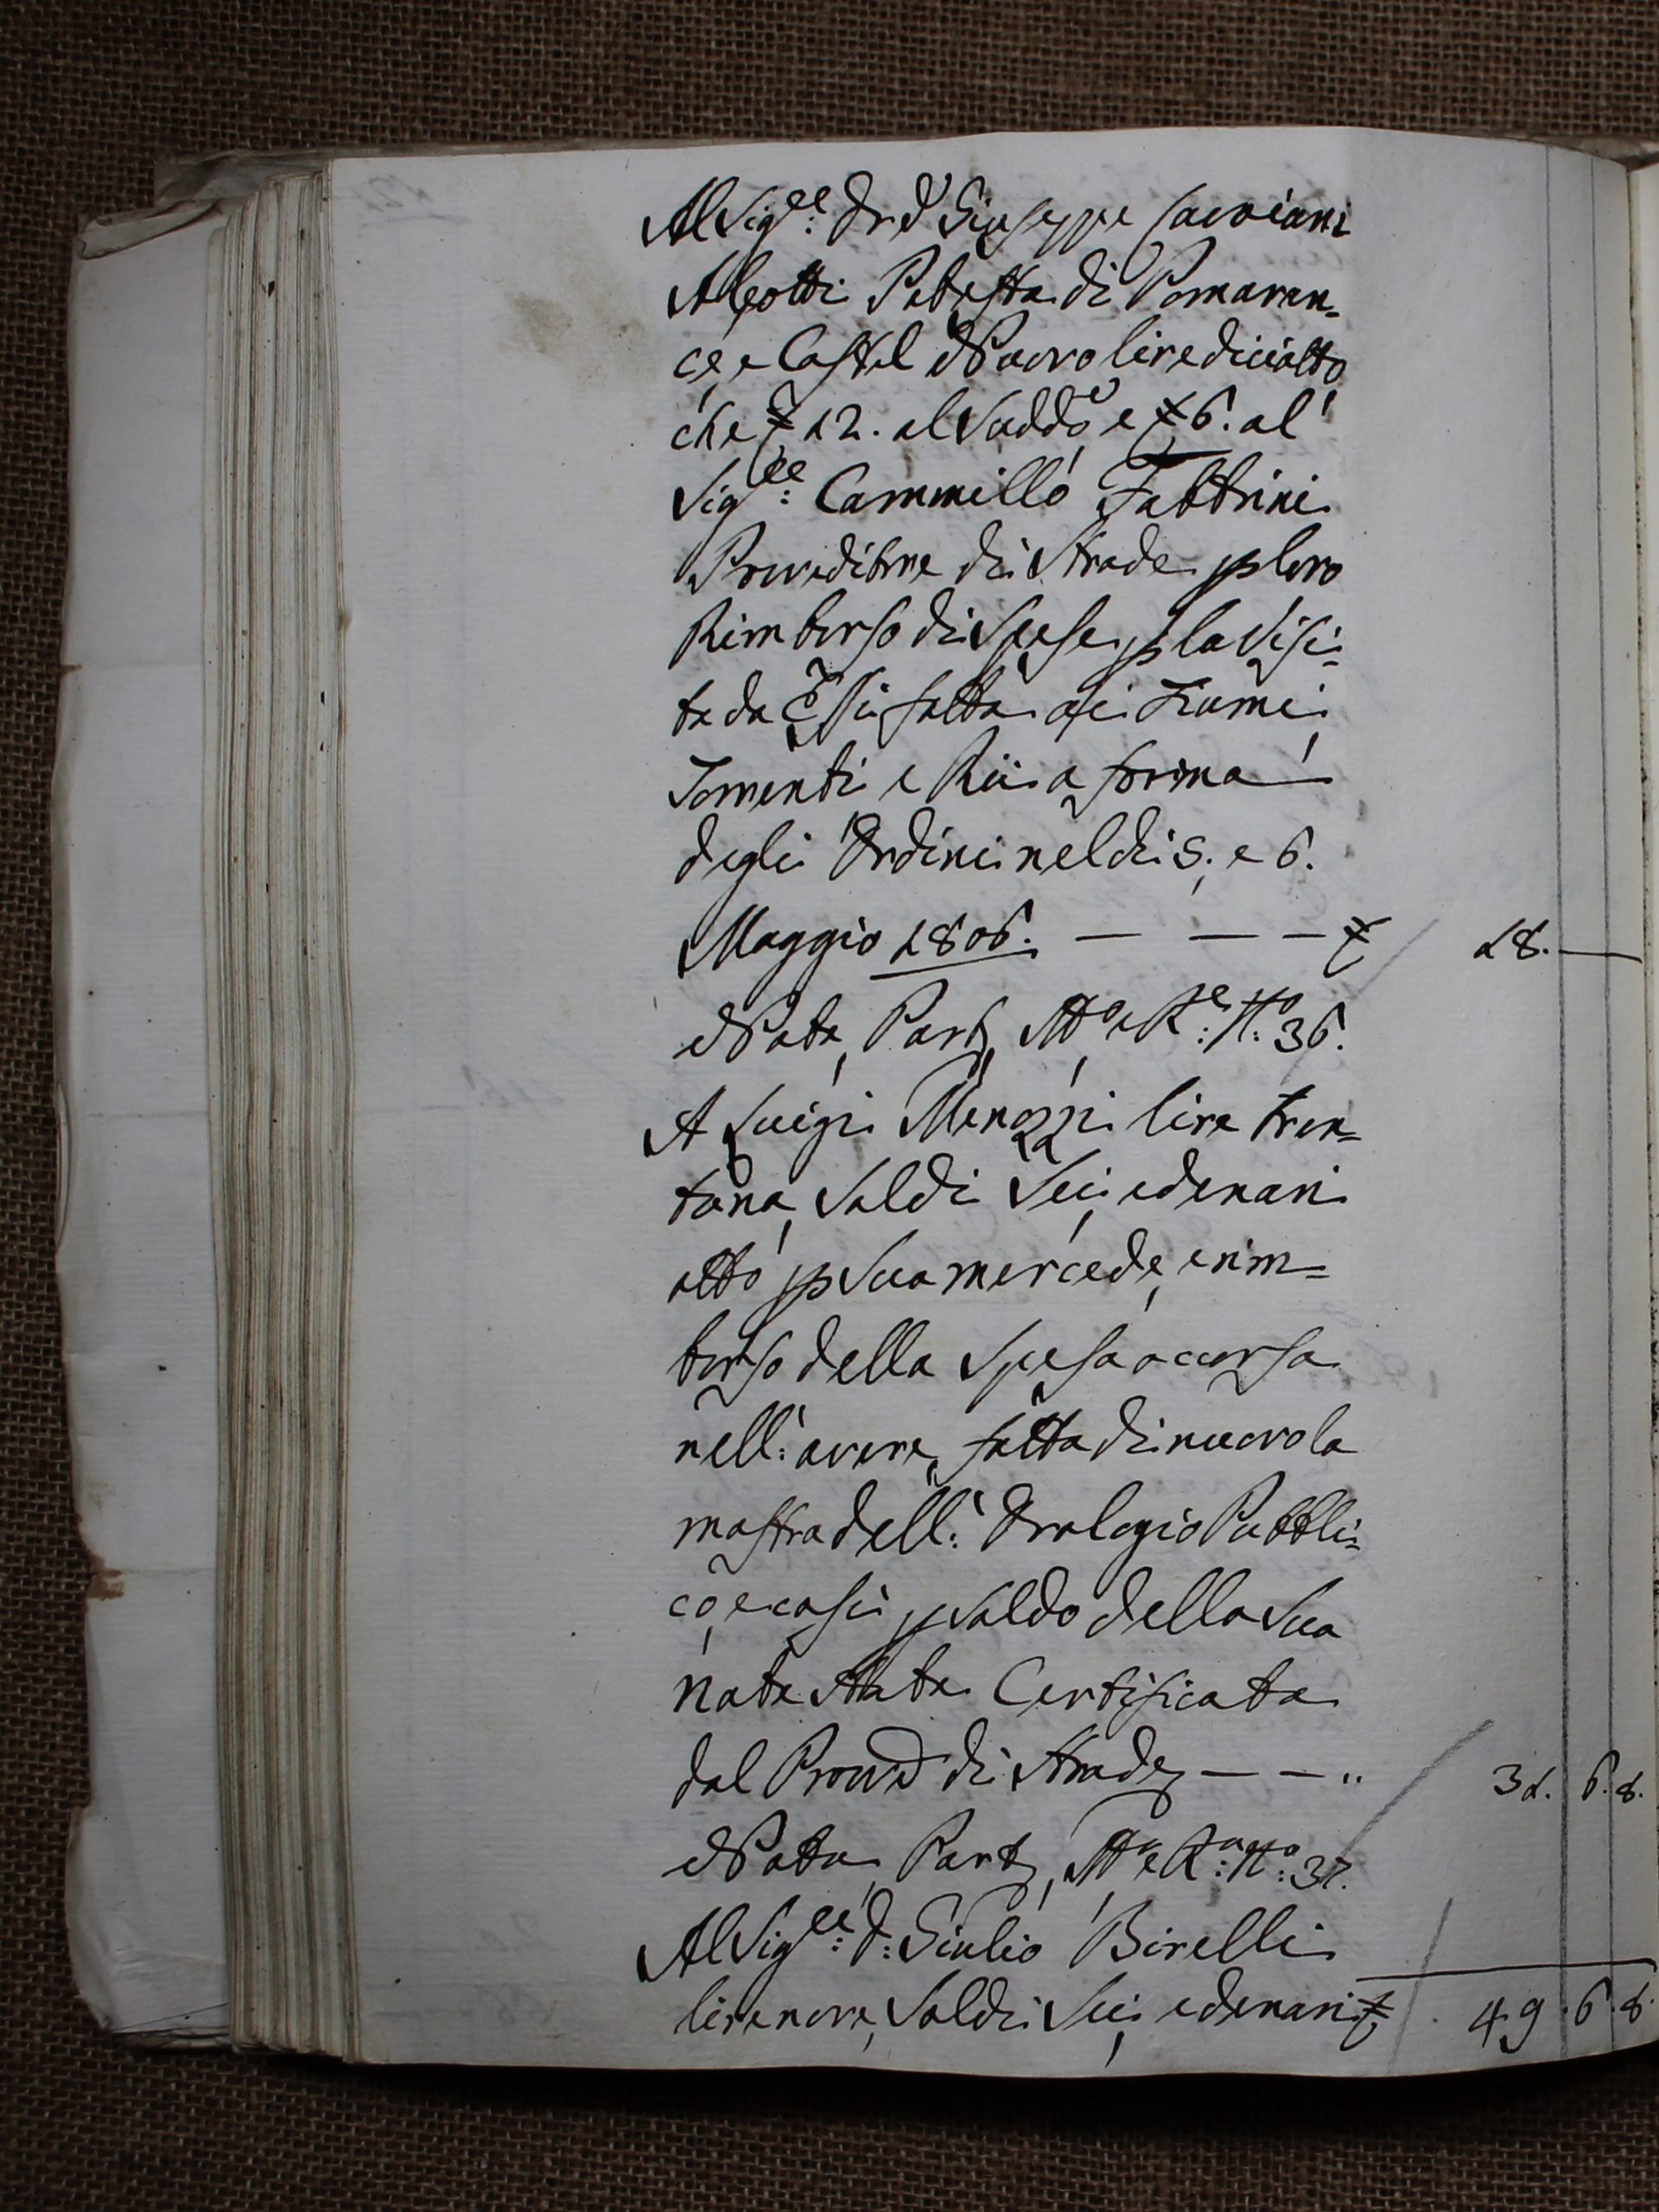 Al Sig:re Dr d Giuseppe
Aleotti Potestà di Pomaran=
ce, e Castel Nuovo lire diciotto
che £ 12. al Suddo e £ 6. al
Sig:re Cammillo Fabbrini
Provveditore di Strade p loro
Rimborso di Spese p la Visi=
ta da Essi fatta ai Fiumi
Torrenti e Rii a forma
degli Ordini nel di 5. e 6.
Maggio 1806. — — — £ 18. —
Nota, Part, Atto e Re: No: 36.
A Luigi Menozzi lire tren=
tuna, Soldi Sei, e denari
otto p Sua mercede, e rim=
borso della Spesa occorsa
nell: avere, fatta di nuovo la
mostra dell: Orologio Pubbli=
co, e così p Saldo della Sua
nota Stata Certificata
dal Provvd di Strade, — — " 31. 6. 8.
Nota, Part, Atto e Ra: No: 37.
Al Sig:re D: Giulio Birelli
lire nove, Soldi Sei, e denari £ 49. 6. 8.